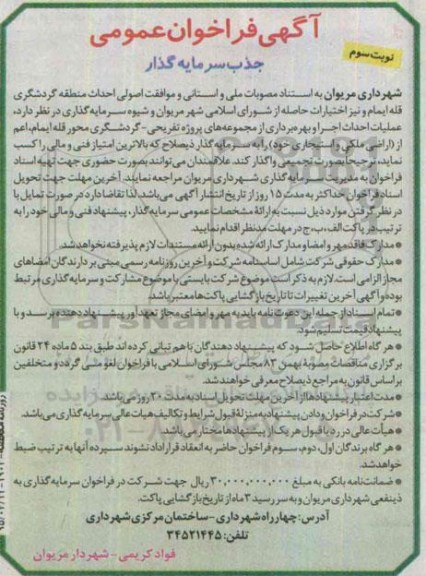 آگهی فراخوان عمومی
نوبت سوم
جذب سرمایه گذار
شهرداری مریوان به استناد مصوبات ملی و استانی و موافقت اصولی احداث منطقه گردشگری
قله ایمام و نیز اختیارات حاصله از شورای اسلامی شهر مریوان و شیوه سرمایه گذاری در نظر دارد،
عملیات احداث اجرا و بهره برداری از مجموعه های پروژه تفریحی-گردشگری محور قله ایمام، اعم
از (اراضی ملکی و استیجاری خود) را به سرمایه گذار ذیصلاح که بالاترین امتیاز فنی و مالی را کسب
نماید، ترجیحاً بصورت تجمیعی واگذار کند. علاقمندان می توانند بصورت حضوری جهت تهیه اسناد
فراخوان به مدیریت سرمایه گذاری شهرداری مریوان مراجعه نمایند. آخرین مهلت جهت تحویل
اسناد فراخوان حداکثر به مدت ۱۵ روز از تاریخ انتشار آگهی می باشد. لذا تقاضا دارد در صورت تمایل با
در نظر گرفتن موارد ذیل نسبت به ارائه مشخصات عمومی سرمایه گذار، پیشنهاد فنی و مالی خود را به
ترتیب در پاکت الف، ب، ج در مهلت مدنظر اقدام نمایید.
*مدارک فاقد مهر و امضا و مدارک ارائه شده بدون ارائه مستندات لازم پذیرفته نخواهد شد.
*مدارک حقوقی شرکت شامل اساسنامه شرکت و آخرین روزنامه رسمی مبنی بر دارندگان امضاهای
مجاز الزامی است. لازم به ذکر است موضوع شرکت بایستی با موضوع مشارکت و سرمایه گذاری مرتبط
بوده و آگهی آخرین تغییرات تا تاریخ بازگشایی پاکت ها معتبر باشد.
*تمام اسناد از جمله این دعوت نامه باید به مهر و امضای مجاز تعهدآور پیشنهاد دهنده برسد و با
پیشنهاد قیمت تسلیم شود.
*هرگاه اطلاع حاصل شود که پیشنهاد دهندگان با هم تبانی کرده اند طبق بند ۵ ماده ۲۴ قانون
برگزاری مناقصات مصوبه بهمن ۸۳ مجلس شورای اسلامی با فراخوان لغو می گردد و متخلفین
بر اساس قانون به مراجع ذیصلاح معرفی خواهند شد.
*مدت اعتبار پیشنهادها از آخرین مهلت تحویل اسناد به مدت ۳۰ روز می باشد.
*شرکت در فراخوان و دادن پیشنهاد به منزله قبول شرایط و تکالیف هیات عالی سرمایه گذاری می باشد.
*هیأت عالی در رد یا قبول هر یک از پیشنهادها مختار می باشد.
*هرگاه برندگان اول، دوم، سوم فراخوان حاضر به انعقاد قرارداد نشوند سپرده آنها به ترتیب ضبط
خواهد شد.
*ضمانت نامه بانکی به مبلغ ۳۰,۰۰۰,۰۰۰,۰۰۰ ریال جهت شرکت در فراخوان سرمایه گذاری به
ذینفعی شهرداری مریوان و به سررسید ۳ ماه از تاریخ بازگشایی پاکت.
آدرس: چهارراه شهرداری - ساختمان مرکزی شهرداری
تلفن: ۳۴۵۲۱۴۴۵
فواد کریمی - شهردار مریوان